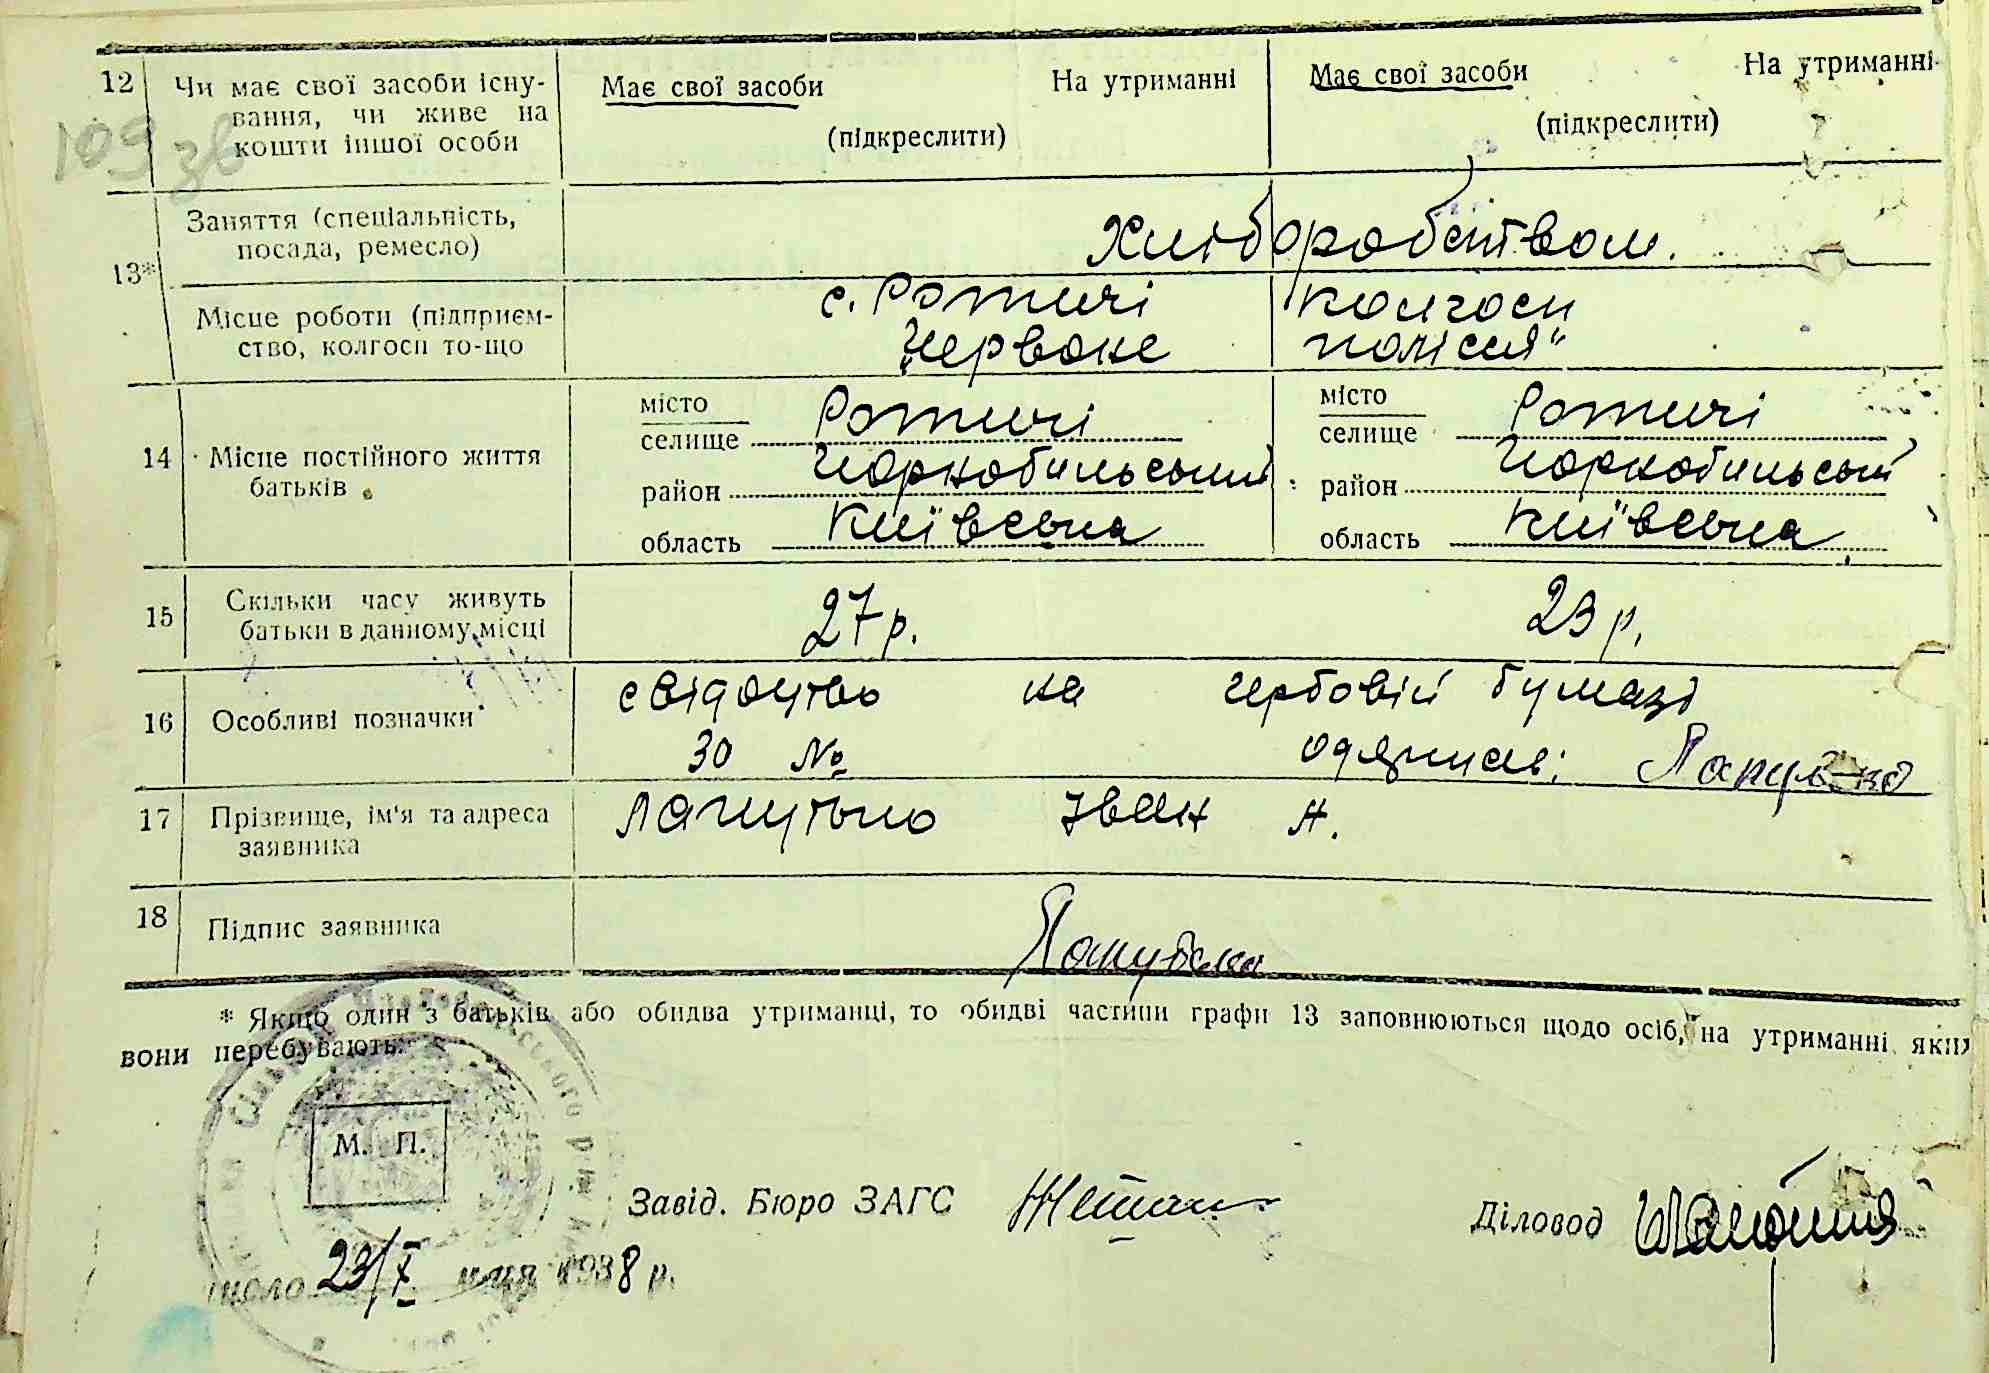 12 Чи має свої засоби існу- Має свої засоби На утриманні Має свої засоби На утриманні
вання, чи живе на (підкреслити) (підкреслити)
кошти іншої особи
109 зв
13* Заняття (спеціальність, посада, ремесло) Хліборобством.
Місце роботи (підприєм- с. Ротичі колгосп
ство, колгосп то-що „Червоне полісся“
14 Місце постійного життя батьків
місто селище Ротичі місто селище Ротичі
район Чорнобильський район Чорнобильський
область Київська область Київська
15 Скільки часу живуть 27 р. 23 р.
батьки в данному місці
16 Особливі позначки свідоцтво на гербовій бумазі
30 №
17 Прізвище, ім'я та адреса Лапутько Іван А.
заявника
18 Підпис заявника
* Якщо один з батьків або обидва утриманці, то обидві частини графи 13 заповнюються щодо осіб, на утриманні яких
вони перебувають.
М. П.
Завід. Бюро ЗАГС Діловод
число 23/X 1938 р.